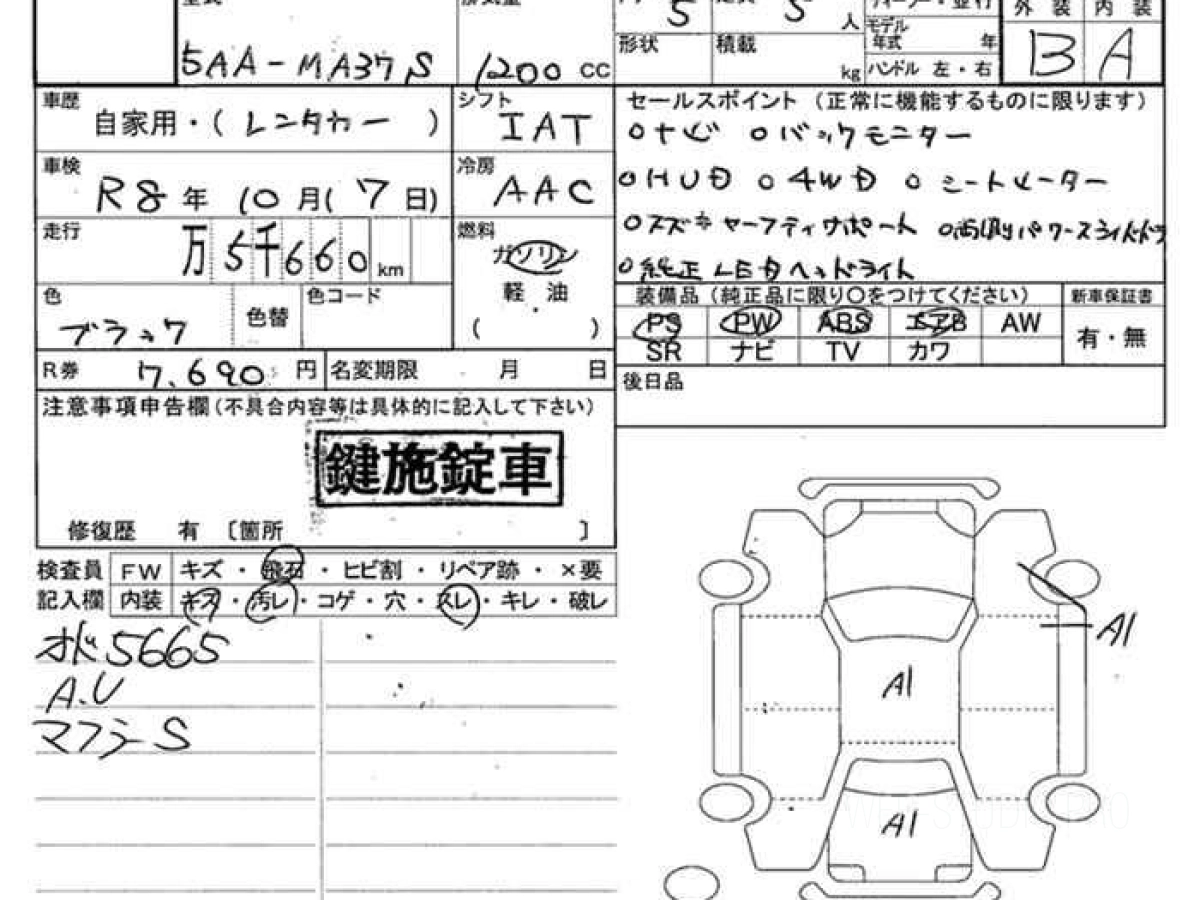 5 5 人
モデル年式 年
外装 内装
5AA-MA37S 1200 cc
形状 積載 kg ハンドル 左・右
B A
車歴 自家用・(レンタカー)
シフト IAT
セールスポイント(正常に機能するものに限ります)
○ナビ ○バックモニター
車検 R8年 10月(7日)
冷房 AAC
○HUD ○4WD ○シートヒーター
走行 万5千660km
燃料 ガソリン
軽油
( )
○スズキセーフティサポート ○両側パワースライドドア
○純正LEDヘッドライト
色 ブラック 色替 色コード
装備品(純正品に限り○をつけてください) 新車保証書
PS PW ABS エアB AW
SR ナビ TV カワ
有・無
R券 7,690円 名変期限 月 日
後日品
注意事項申告欄(不具合内容等は具体的に記入して下さい)
鍵施錠車
修復歴 有〔箇所 〕
検査員 FW キズ・飛石・ヒビ割・リペア跡・×要
記入欄 内装 キズ・汚レ・コゲ・穴・スレ・キレ・破レ
5665
A.U
マフラーS
A1
A1
A1